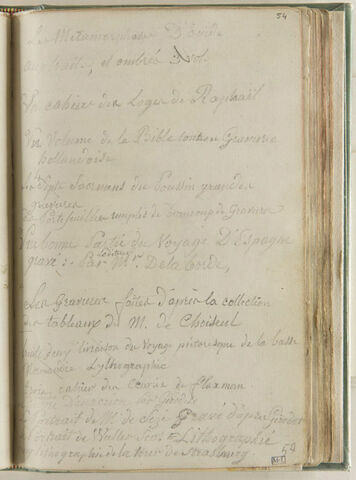 34
Les Metamorphoses D'Ovide
au trait, et ombrés 3 vol.
Un cahier des Loges de Raphaël
Un Volume de la Bible toutes Gravures
hollandoise
Les Sept Sacremens du Poussin grandes
gravures
Portefeuilles remplis de beaucoup de Gravures
Une bonne Partie du Voyage D'Espagne
gravé Par Mr. Delaborde,
Les Gravures faites d'après la collection
des tableaux de M. de Choiseul
livraison du Voyage pittoresque de la basse
Normandie Lythographié
cahier des Œuvres de flaxman
Girodet
Portrait de M. de Sèze Gravé d'après Girodet
Portrait de Walter Scot Lithographié
Lithographie de la tour de Strasbourg.
54